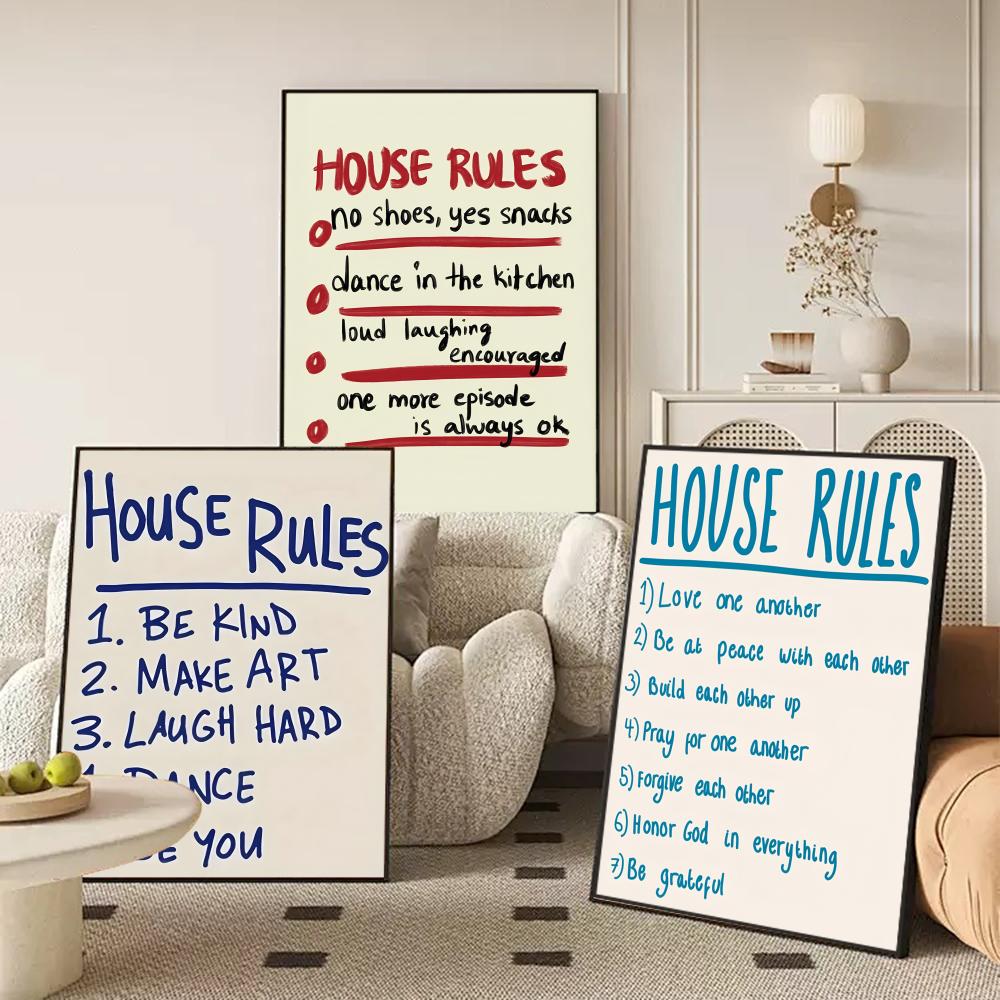 HOUSE RULES
no shoes, yes snacks
dance in the kitchen
loud laughing
encouraged
one more episode
is always ok
HOUSE RULES
1. BE KIND
2. MAKE ART
3. LAUGH HARD
DANCE
YOU
HOUSE RULES
1) Love one another
2) Be at peace with each other
3) Build each other up
4) Pray for one another
5) Forgive each other
6) Honor God in everything
7) Be grateful